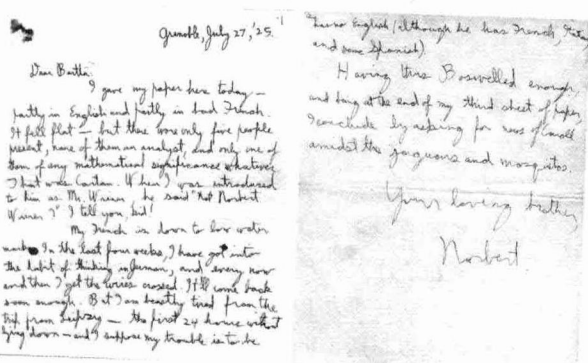 Grenoble, July 27, '25.
Dear Bertha
I gave my paper here today —
partly in English and partly in bad French.
It fell flat — but there were only five people
present, none of them an analyst, and only one of
them of any mathematical significance whatever.
That was Cartan. When I was introduced
to him as Mr. Wiener he said "Not Norbert
Wiener?" I tell you, kid!
My French is down to low water
mark. In the last four weeks, I have got into
the habit of thinking in German, and every now
and then I get the wires crossed. It'll come back
soon enough. But I am beastly tired from the
trip from Leipzig — the first 24 hours without
lying down — and I suppose my trouble is to be
no English (although he has French,
and some Spanish)
Having thus Boswelled enough,
and being at the end of my third sheet of paper,
I conclude by asking for news of
amidst the jaguars and mosquitos.
Your loving brother,
Norbert